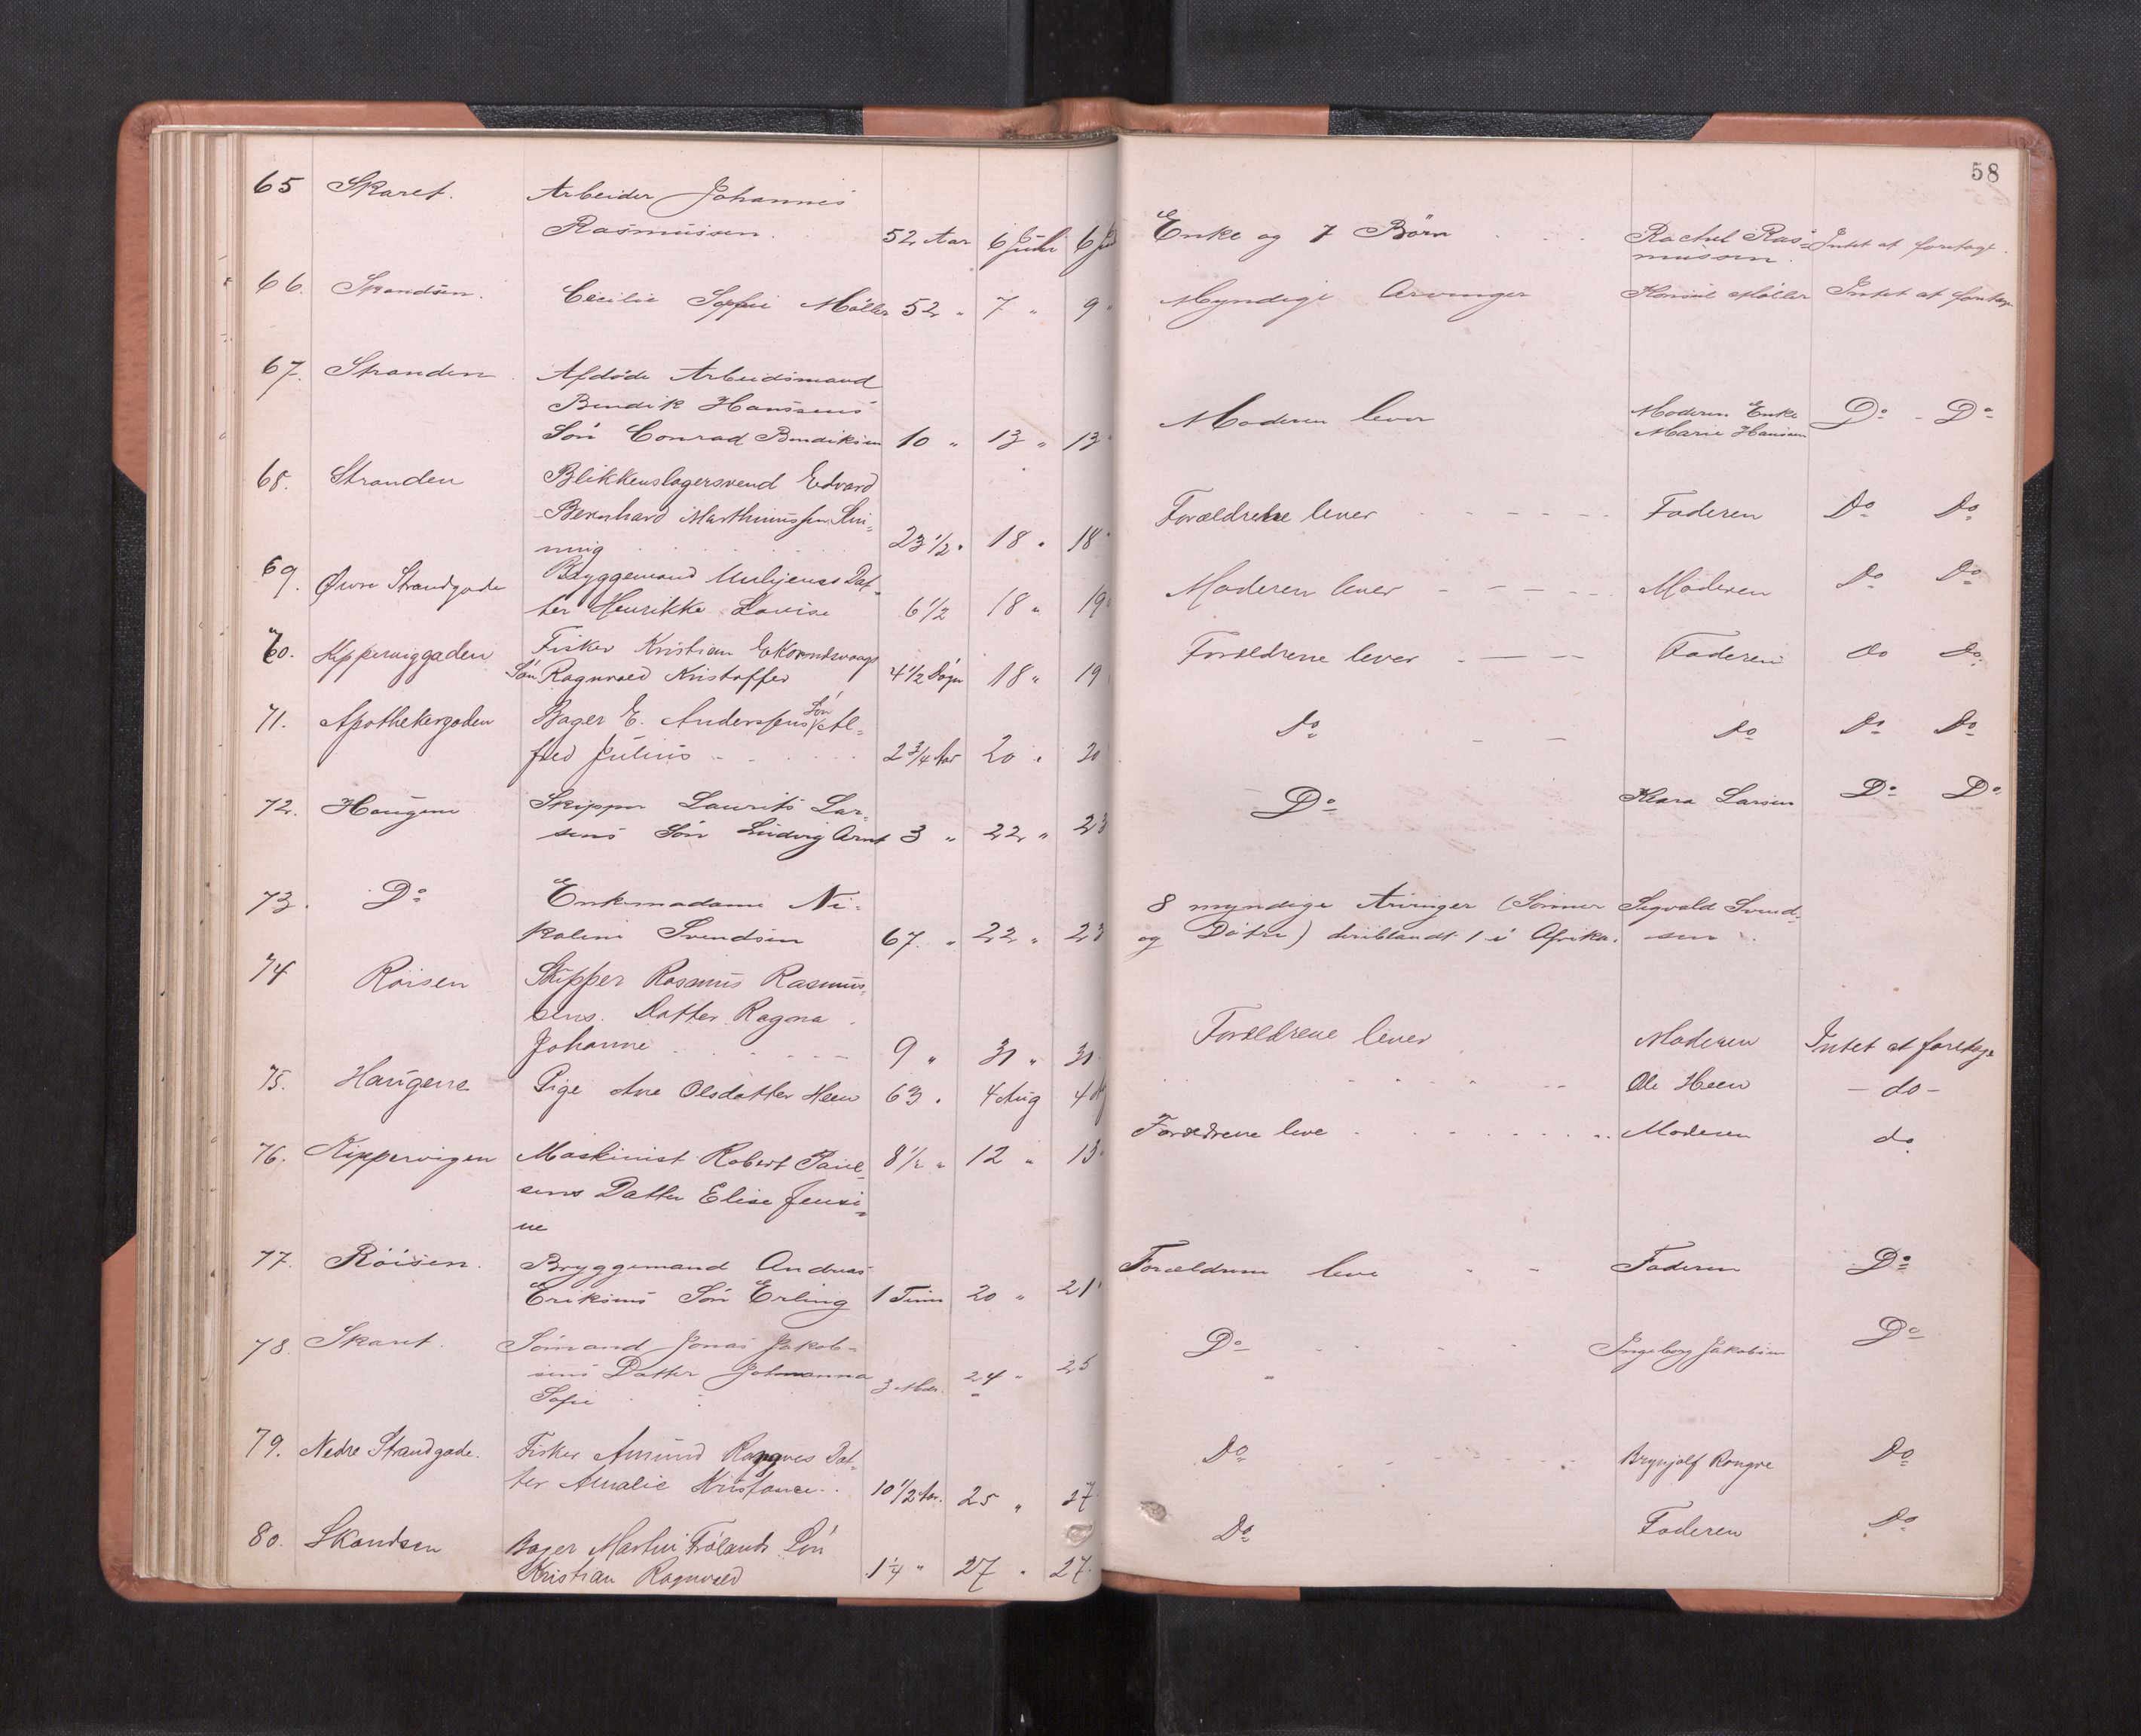 58
65 Skaret. Arbeider Johannes
Rasmussen. 52 Aar 6 Juli 6 Enke og 7 Børn Rachel Ras= Intet at foretage.
mussen.
66. Skandsen. Cecilie Sophie Möller 52 " 7 " 9 " Myndige Arvinger Konsul Møller Intet at foretage
67. Stranden Afdøde Arbeidsmand
Bendik Hanssens Moderen lever Moderen Enke Do - Do
Søn Conrad Bendiksen 10 " 13 " 13 " Marie Hansen
68. Stranden Blikkenslagersvend Edvard
Bernhard Marthinussen Forældrene lever Faderen Do Do
ning 23 1/2 " 18 " 18 "
69. Øvre Strandgade Bryggemand Dat=
ter Henrikke Lovise 6 1/2 18 " 19 Moderen lever Moderen Do Do
70. Kipperviggaden Fisker Kristian
Søn Ragnvald Kristoffer 4 1/2 Døgn 18 " 19 Forældrene lever Faderen do do.
71. Apothekergaden Bager E. Anderssens Søn Al=
fred Julius 2 3/4 Aar 20 " 20 Do Do Do Do
72. Haugene Skipper Laurits Lar=
sens Søn Ludvig Arnt 3 " 22 " 23 Do Klara Larsen Do Do
73. Do Enkemadame Ni=
koline Svendsen 67. " 22 " 23 8 myndige Arvinger (Sønner Sigvald Svend=
og Døtre) deriblandt 1 i Afrika. sen.
74 Røisen Skipper Rasmus Rasmus=
sens. Datter Ragna
Johanne 9 " 31 " 31 Forældrene lever Moderen Intet at foretage
75. Haugene Pige Ane Olsdatter Heen 63 " 4 Aug 4 Ole Heen - do -
76. Kippervigen Maskinist Robert Paul= 8 1/2 " 12 " 13 " Forældrene leve Moderen do.
sens Datter Elise Jensi=
ne
77. Röisen. Bryggemand Andreas
Eriksens Søn Erling 1 Time 20 " 21 " Forældrene leve Faderen Do
78. Skaret. Sømand Jonas Jakob=
sens Datter Johanna 3 Mdr. 24 " 25 Do Ingeborg Jakobsen Do
Sofie
79. Nedre Strandgade. Fisker Amund Rongves Dat=
ter Amalie Kristance 10 1/2 Aar. 25 " 27 Do Brynjolf Rongve Do
80. Skandsen Bager Martin Frølands Søn
Kristian Ragnvald 1 1/4 " 27 " 27. Do Faderen Do